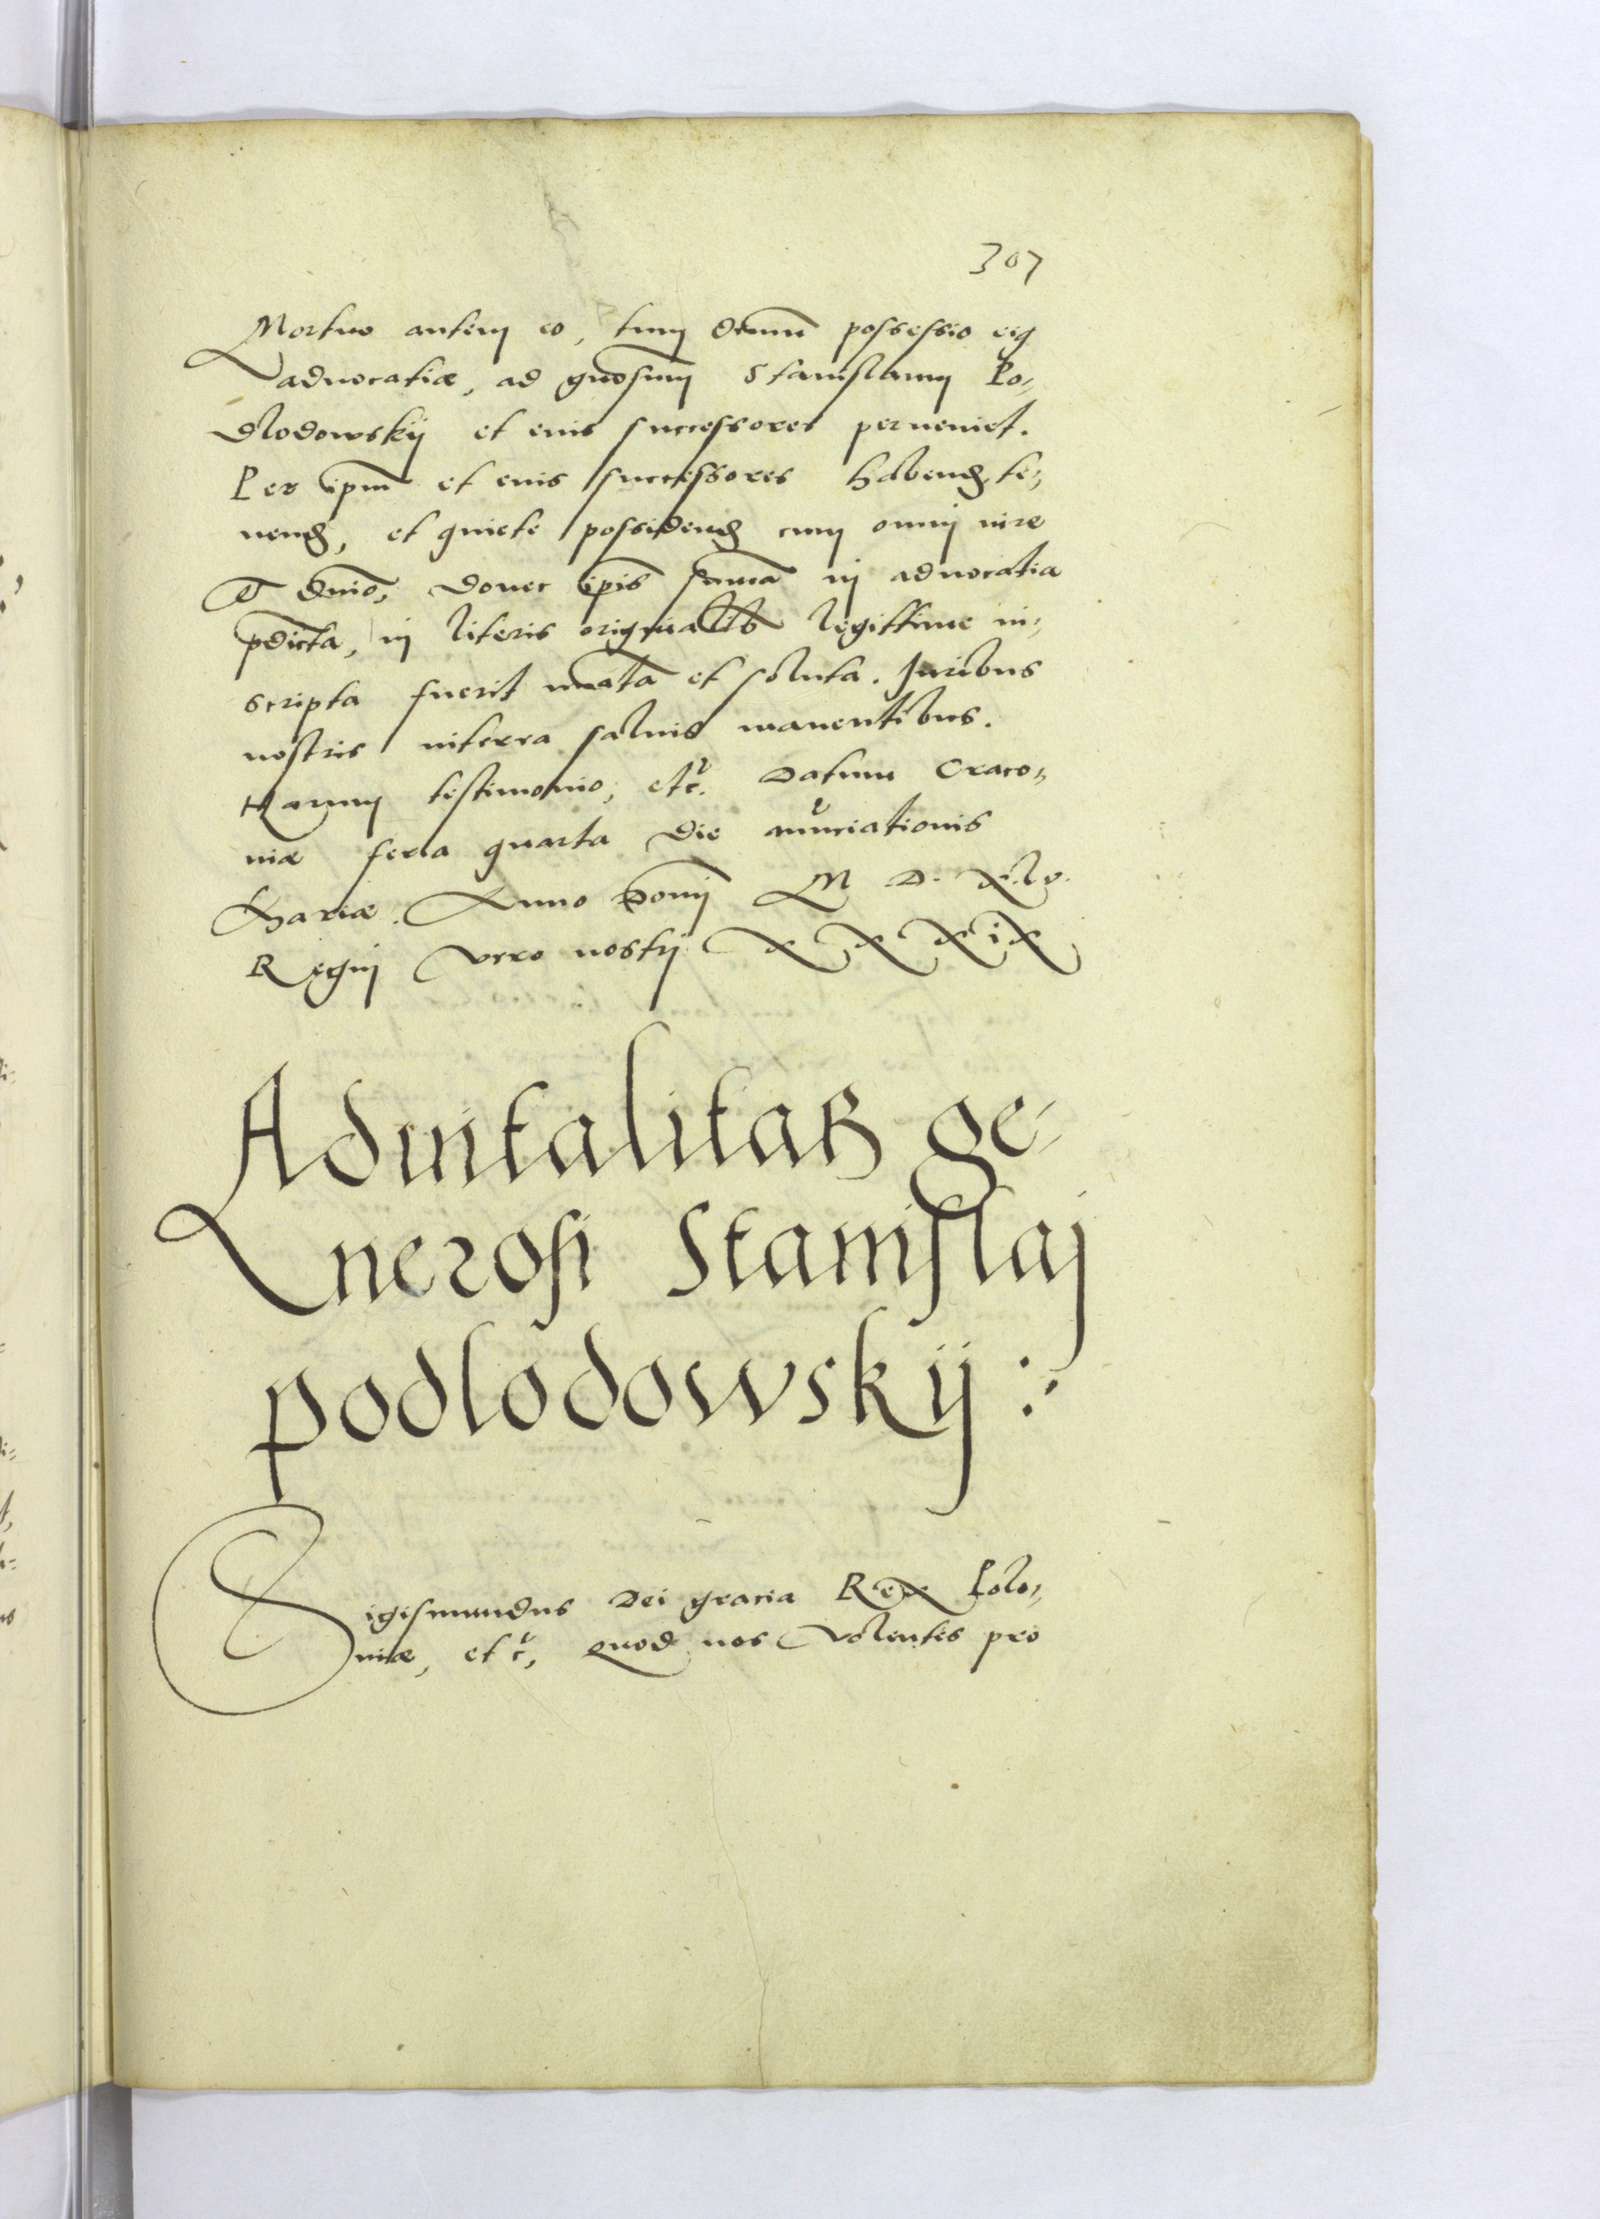 307
Mortuo autem eo, tum demū possessio eiꝯ
advocatiæ, ad gnosum Stanislaum Po⸗
dlodowskij et euis successores perveniet.
Per ipm̄ et euis successores habend, te⸗
nend, et quiete possidend cum omnj iure
et dnio, donec ipis suma in advocatia
pdicta, in literis originalib legittime in⸗
scripta fuerit nūata et soluta. Juribus
nostris interea salvis manentibus.
Harum testimonio, etc. Datum Craco⸗
niæ feria quarta die anūciationis
Mariæ. Anno Domj M D. XLV.
Regnj vero nostrj XXXIX
Aduitalitas ge⸗
nerosi Stanislaj
podlodowskij :
Sigismundus Dei gracia Rex Polo⸗
niæ, etc, Quod nos volentes pro